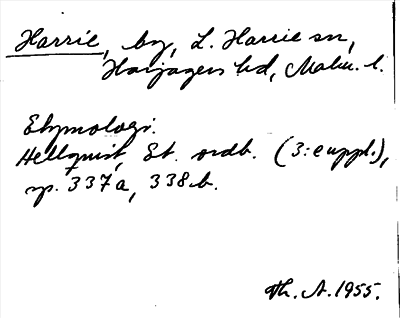 Harrie, by, L. Harrie sn,
Harjagers hd, Malm. l.
Etymologi.
Hellquist, Et. ordb. (3:e uppl.),
sp. 337a, 338b.
Th. A. 1955.